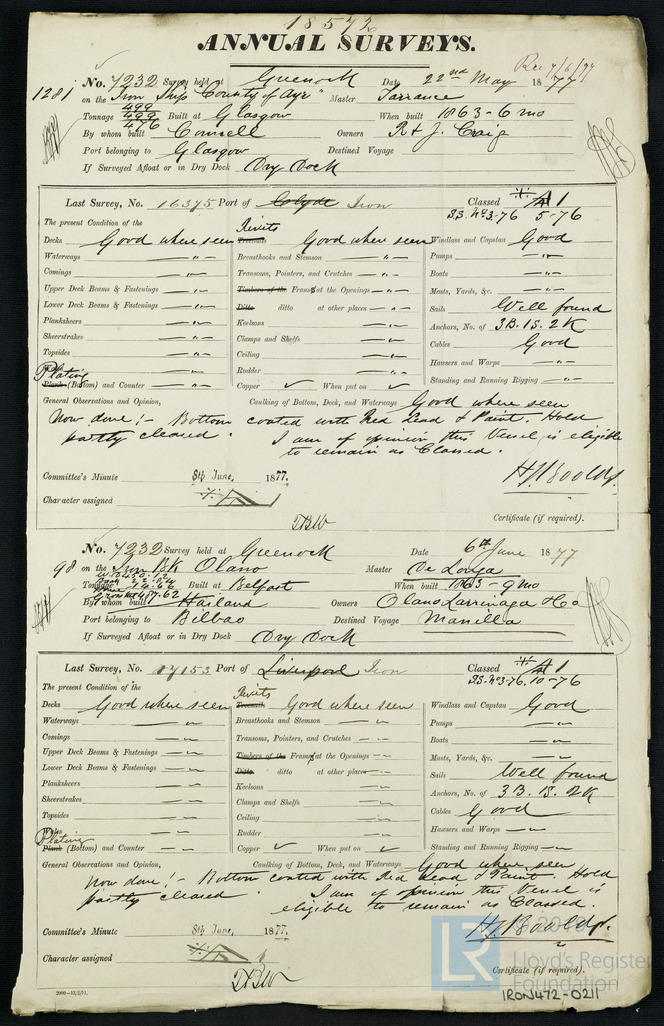 18572
ANNUAL SURVEYS.
Rec 7/6/77
No. 7232 Survey held at Greenock Date 22nd May 1877
1281 on the Iron Ship "County of Ayr" Master Tarrance
Tonnage 499 499 476 Built at Glasgow When built 1863-6 mo
By whom built Connell Owners R & J. Craig
Port belonging to Glasgow Destined Voyage
If Surveyed Afloat or in Dry Dock Dry Dock
Last Survey, No. 16375 Port of Clyde Iron Classed A1
S.S. No 3-76 5-76
The present Condition of the Rivets
Decks Good where seen Treenails Good where seen Windlass and Capstan Good
Waterways -"- Breasthooks and Stemson -"- Pumps -"-
Comings -"- Transoms, Pointers, and Crutches -"- Boats -"-
Upper Deck Beams & Fastenings -"- Timbers of the Frames at the Openings -"- Masts, Yards, &c. -"-
Lower Deck Beams & Fastenings -"- Ditto ditto at other places -"- Sails Well found
Planksheers -"- Keelsons -"- Anchors, No. of 3 B. 1 S. 2 K
Sheerstrakes -"- Clamps and Shelfs -"- Cables Good
Topsides -"- Ceiling -"- Hawsers and Warps -"-
Wales Rudder -"- Standing and Running Rigging -"-
Plating
Plank (Bottom) and Counter -"- Copper ✓ When put on ✓
General Observations and Opinion, Caulking of Bottom, Deck, and Waterways Good where seen
Now done:- Bottom coated with Red Lead & Paint. Hold
partly cleared. I am of opinion this Vessel is eligible
to remain as Classed.
Committee's Minute 8th June, 1877.
Character assigned
Certificate (if required).
No. 7232 Survey held at Greenock Date 6th June 1877
98 on the Iron Bk Olano Master De Longa
Tonnage Built at Belfast When built 1863-9 mo
By whom built Harland Owners Olano Larrinaga & Co
Port belonging to Bilbao Destined Voyage Manilla
If Surveyed Afloat or in Dry Dock Dry Dock
Last Survey, No. 17153 Port of Liverpool Iron Classed A1
S.S. No 3-76. 10-76
The present Condition of the Rivets
Decks Good where seen Treenails Good where seen Windlass and Capstan Good
Waterways -"- Breasthooks and Stemson -"- Pumps -"-
Comings -"- Transoms, Pointers, and Crutches -"- Boats -"-
Upper Deck Beams & Fastenings -"- Timbers of the Frames at the Openings -"- Masts, Yards, &c. -"-
Lower Deck Beams & Fastenings -"- Ditto ditto at other places -"- Sails Well found
Planksheers -"- Keelsons -"- Anchors, No. of 3 B. 1 S. 2 K
Sheerstrakes -"- Clamps and Shelfs -"- Cables Good
Topsides -"- Ceiling -"- Hawsers and Warps -"-
Wales Rudder -"- Standing and Running Rigging -"-
Plating
Plank (Bottom) and Counter -"- Copper ✓ When put on ✓
General Observations and Opinion, Caulking of Bottom, Deck, and Waterways Good where seen
Now done:- Bottom coated with Red Lead & Paint. Hold
partly cleared. I am of opinion this Vessel is
eligible to remain as Classed.
Committee's Minute 8th June, 1877.
Character assigned
Certificate (if required).
LR
Lloyd's Register
Foundation
IRON472-0211